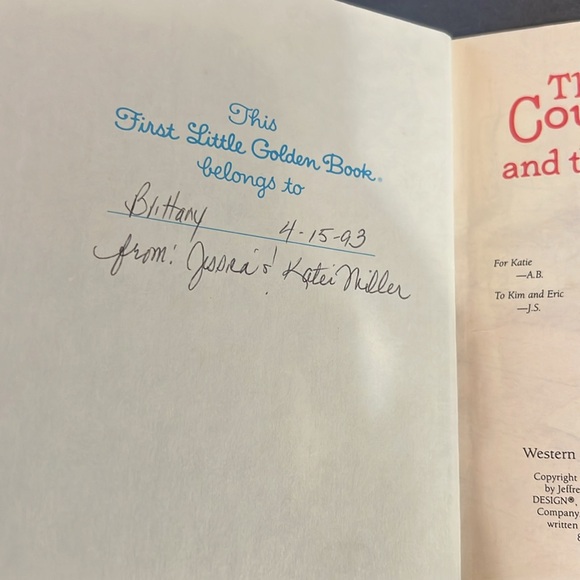 This
First Little Golden Book®
belongs to
Brittany 4-15-93
from: & Katei Miller
Th
Cou
and t
For Katie
—A.B.
To Kim and Eric
—J.S.
Western
Copyright
by Jeffre
DESIGN®,
Company
written